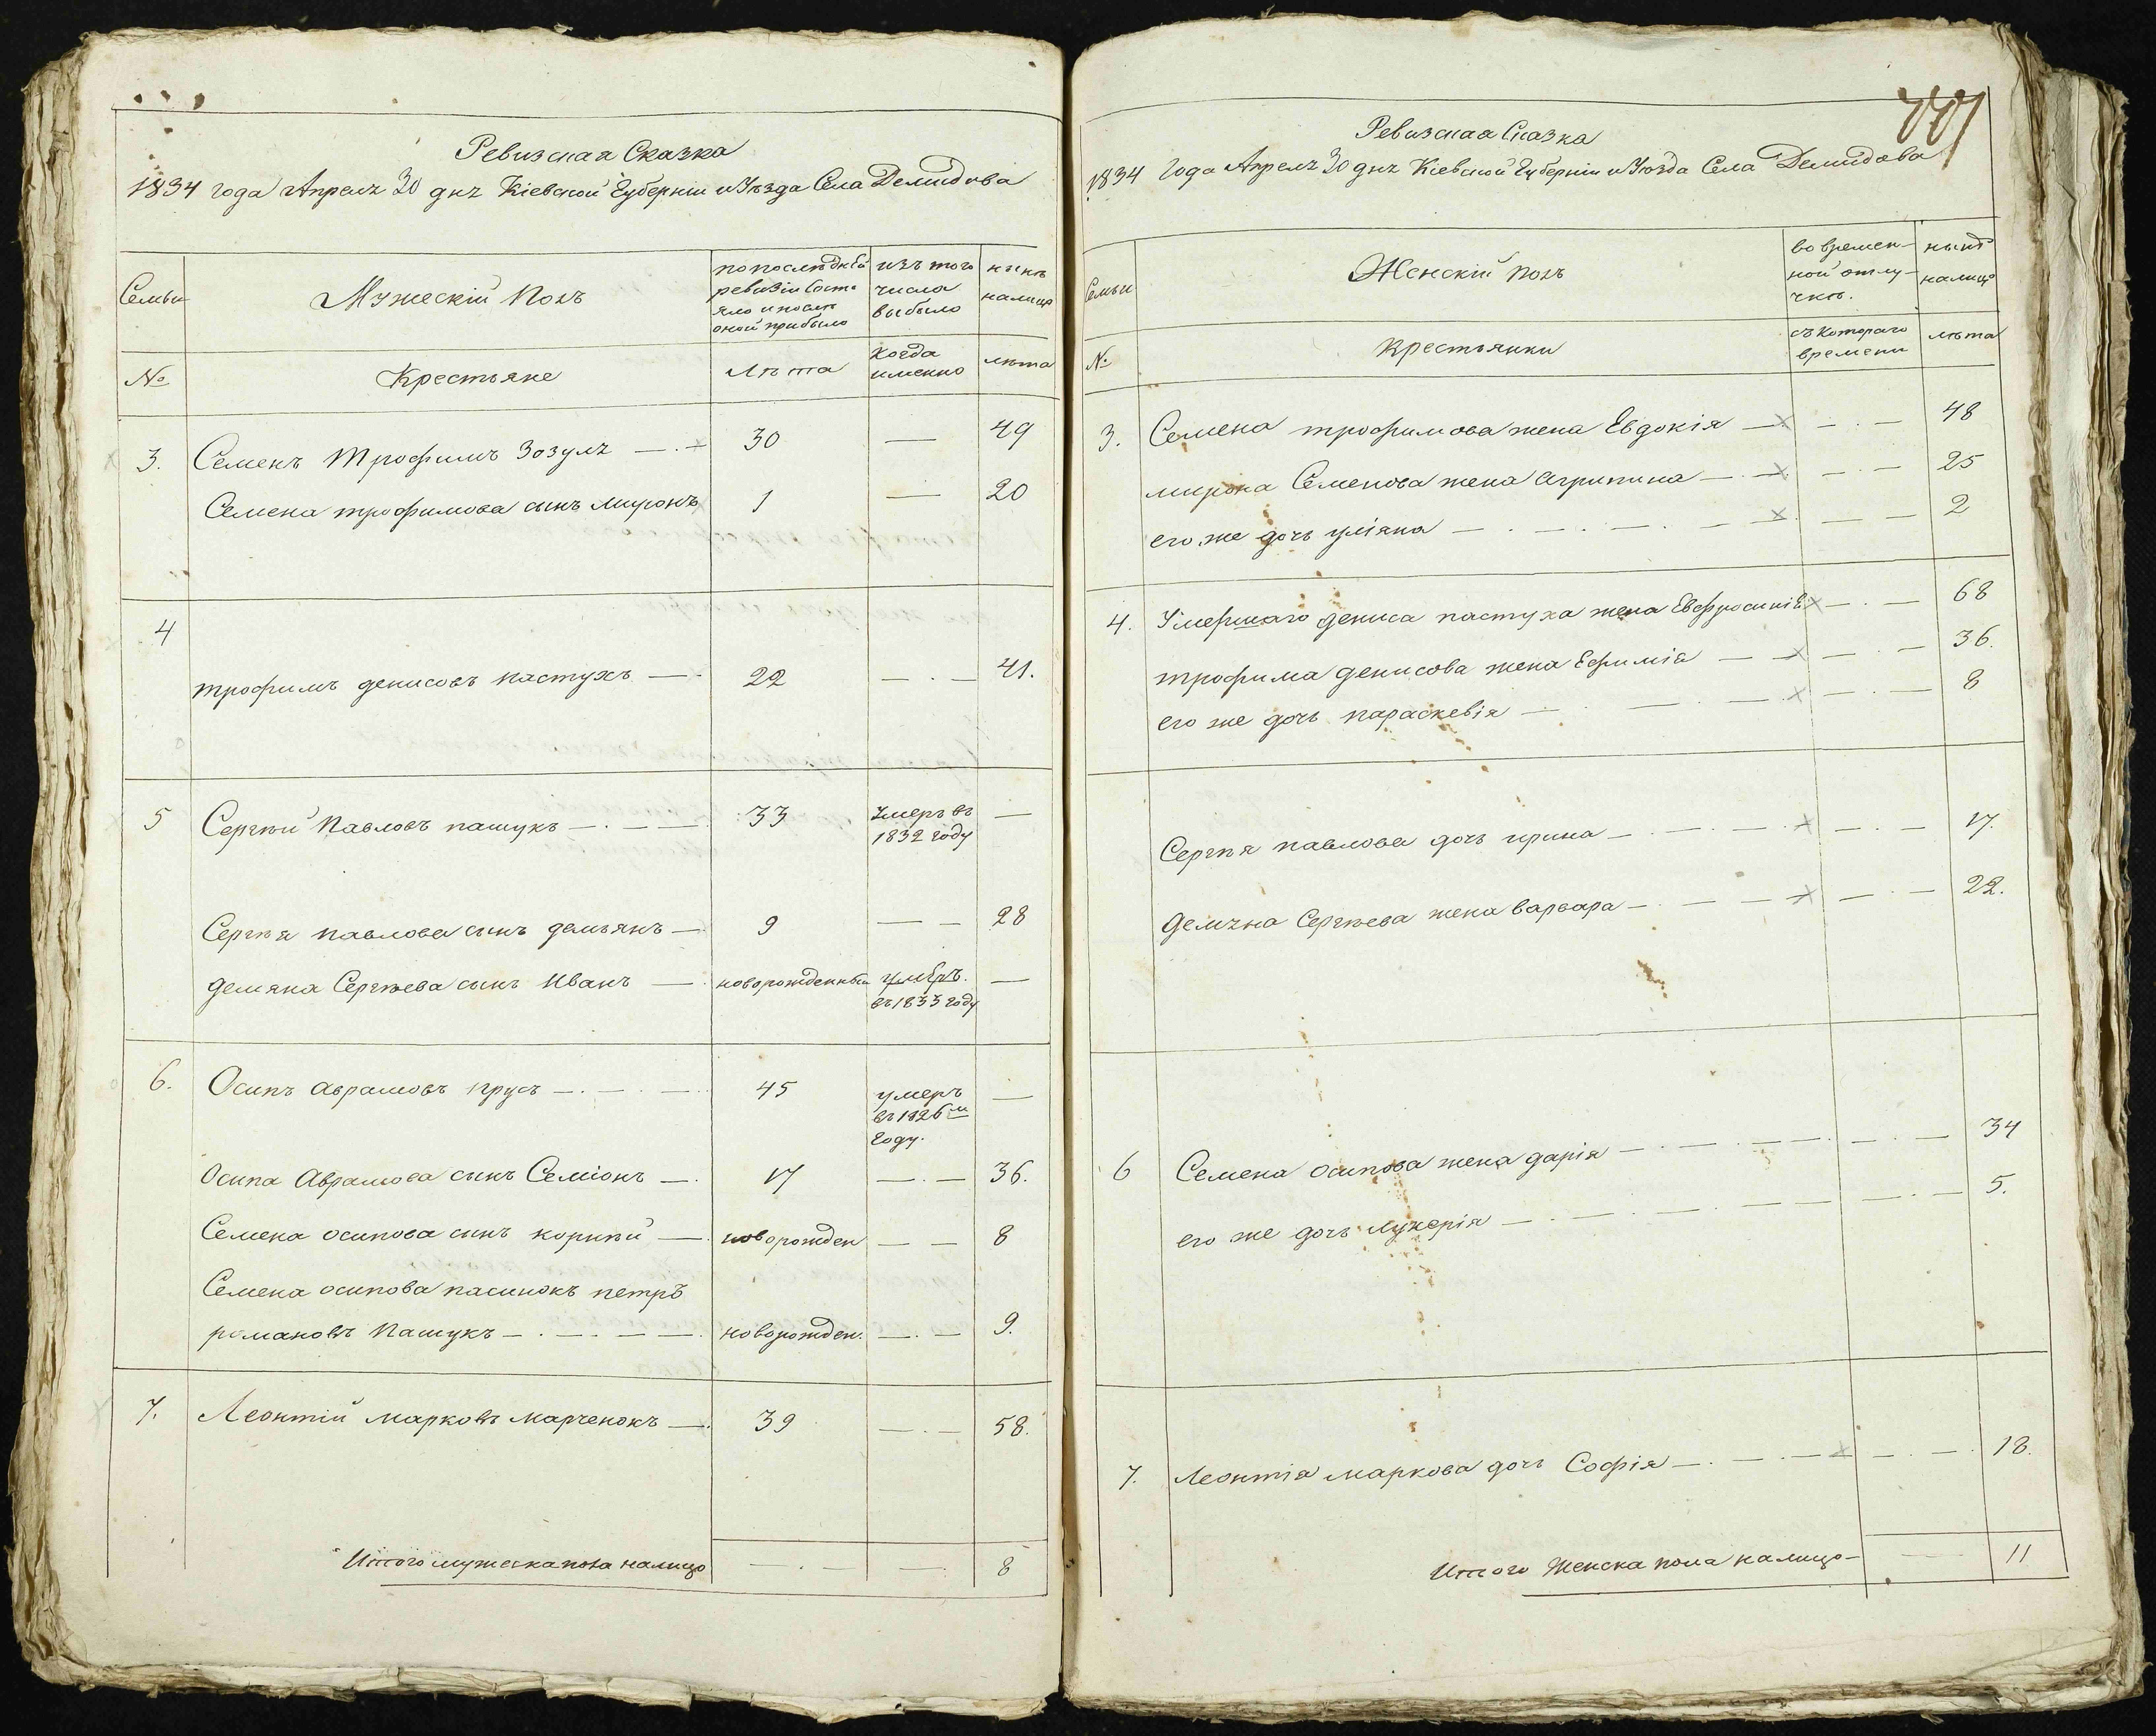 Ревизская Сказка
1834 года Апреля 30 дня Кіевской Губерніи и Уѣзда Села Демидова
Семьи
Мужескій Полъ
по послѣдней ревизіи состояло и послѣ оной прибыло
изъ того числа выбыло
нынѣ налицо
№
Крестьяне
Лѣта
Когда именно
лѣта
3. Семенъ Трофимъ Зозуля 30 — 49
Семена трофимова сынъ миронъ 1 — 20
4
трофимъ денисовъ пастухъ 22 — 41.
5 Сергѣй Павловъ пашукъ 33 Умеръ въ 1832 году —
Сергѣя павлова сынъ демьянъ 9 — 28
демяна Сергѣева сынъ Иванъ новорожденный умеръ въ 1833 году —
6. Осипъ аврамовъ прусъ 45 умеръ въ 1826м году. —
Осипа Аврамова сынъ Семіонъ 17 — 36.
Семена осипова сынъ корнѣй новорожден — 8
Семена осипова пасинокъ петръ
романовъ Пашукъ новорожден. — 9.
7. Леонтій марковъ марченокъ 39 — 58.
Итого мужеска пола налицо — 8
Ревизская Сказка
1834 Года Апреля 30 дня Кіевской Губерніи и Уѣзда Села Демидова
Семьи
Женскій полъ
во временной отлучкѣ.
нынѣ налицо
№
Крестьянки
съ котораго времени
лѣта
3. Семена трофимова жена Евдокія — 48
мирона Семенова жена агрипина — 25
его же дочь уліяна — 2
4. Умершаго дениса пастуха жена Евфросинія — 68
трофима денисова жена Ефимія — 36.
его же дочь параскевія — 8
Сергѣя павлова дочь ирина — 17.
Демяна Сергѣева жена варвара — 22.
6 Семена осипова жена дарія — 34
его же дочь лукерія — 5.
7. Леонтія маркова дочь Софія — 18.
Итого Женска пола налицо — 11